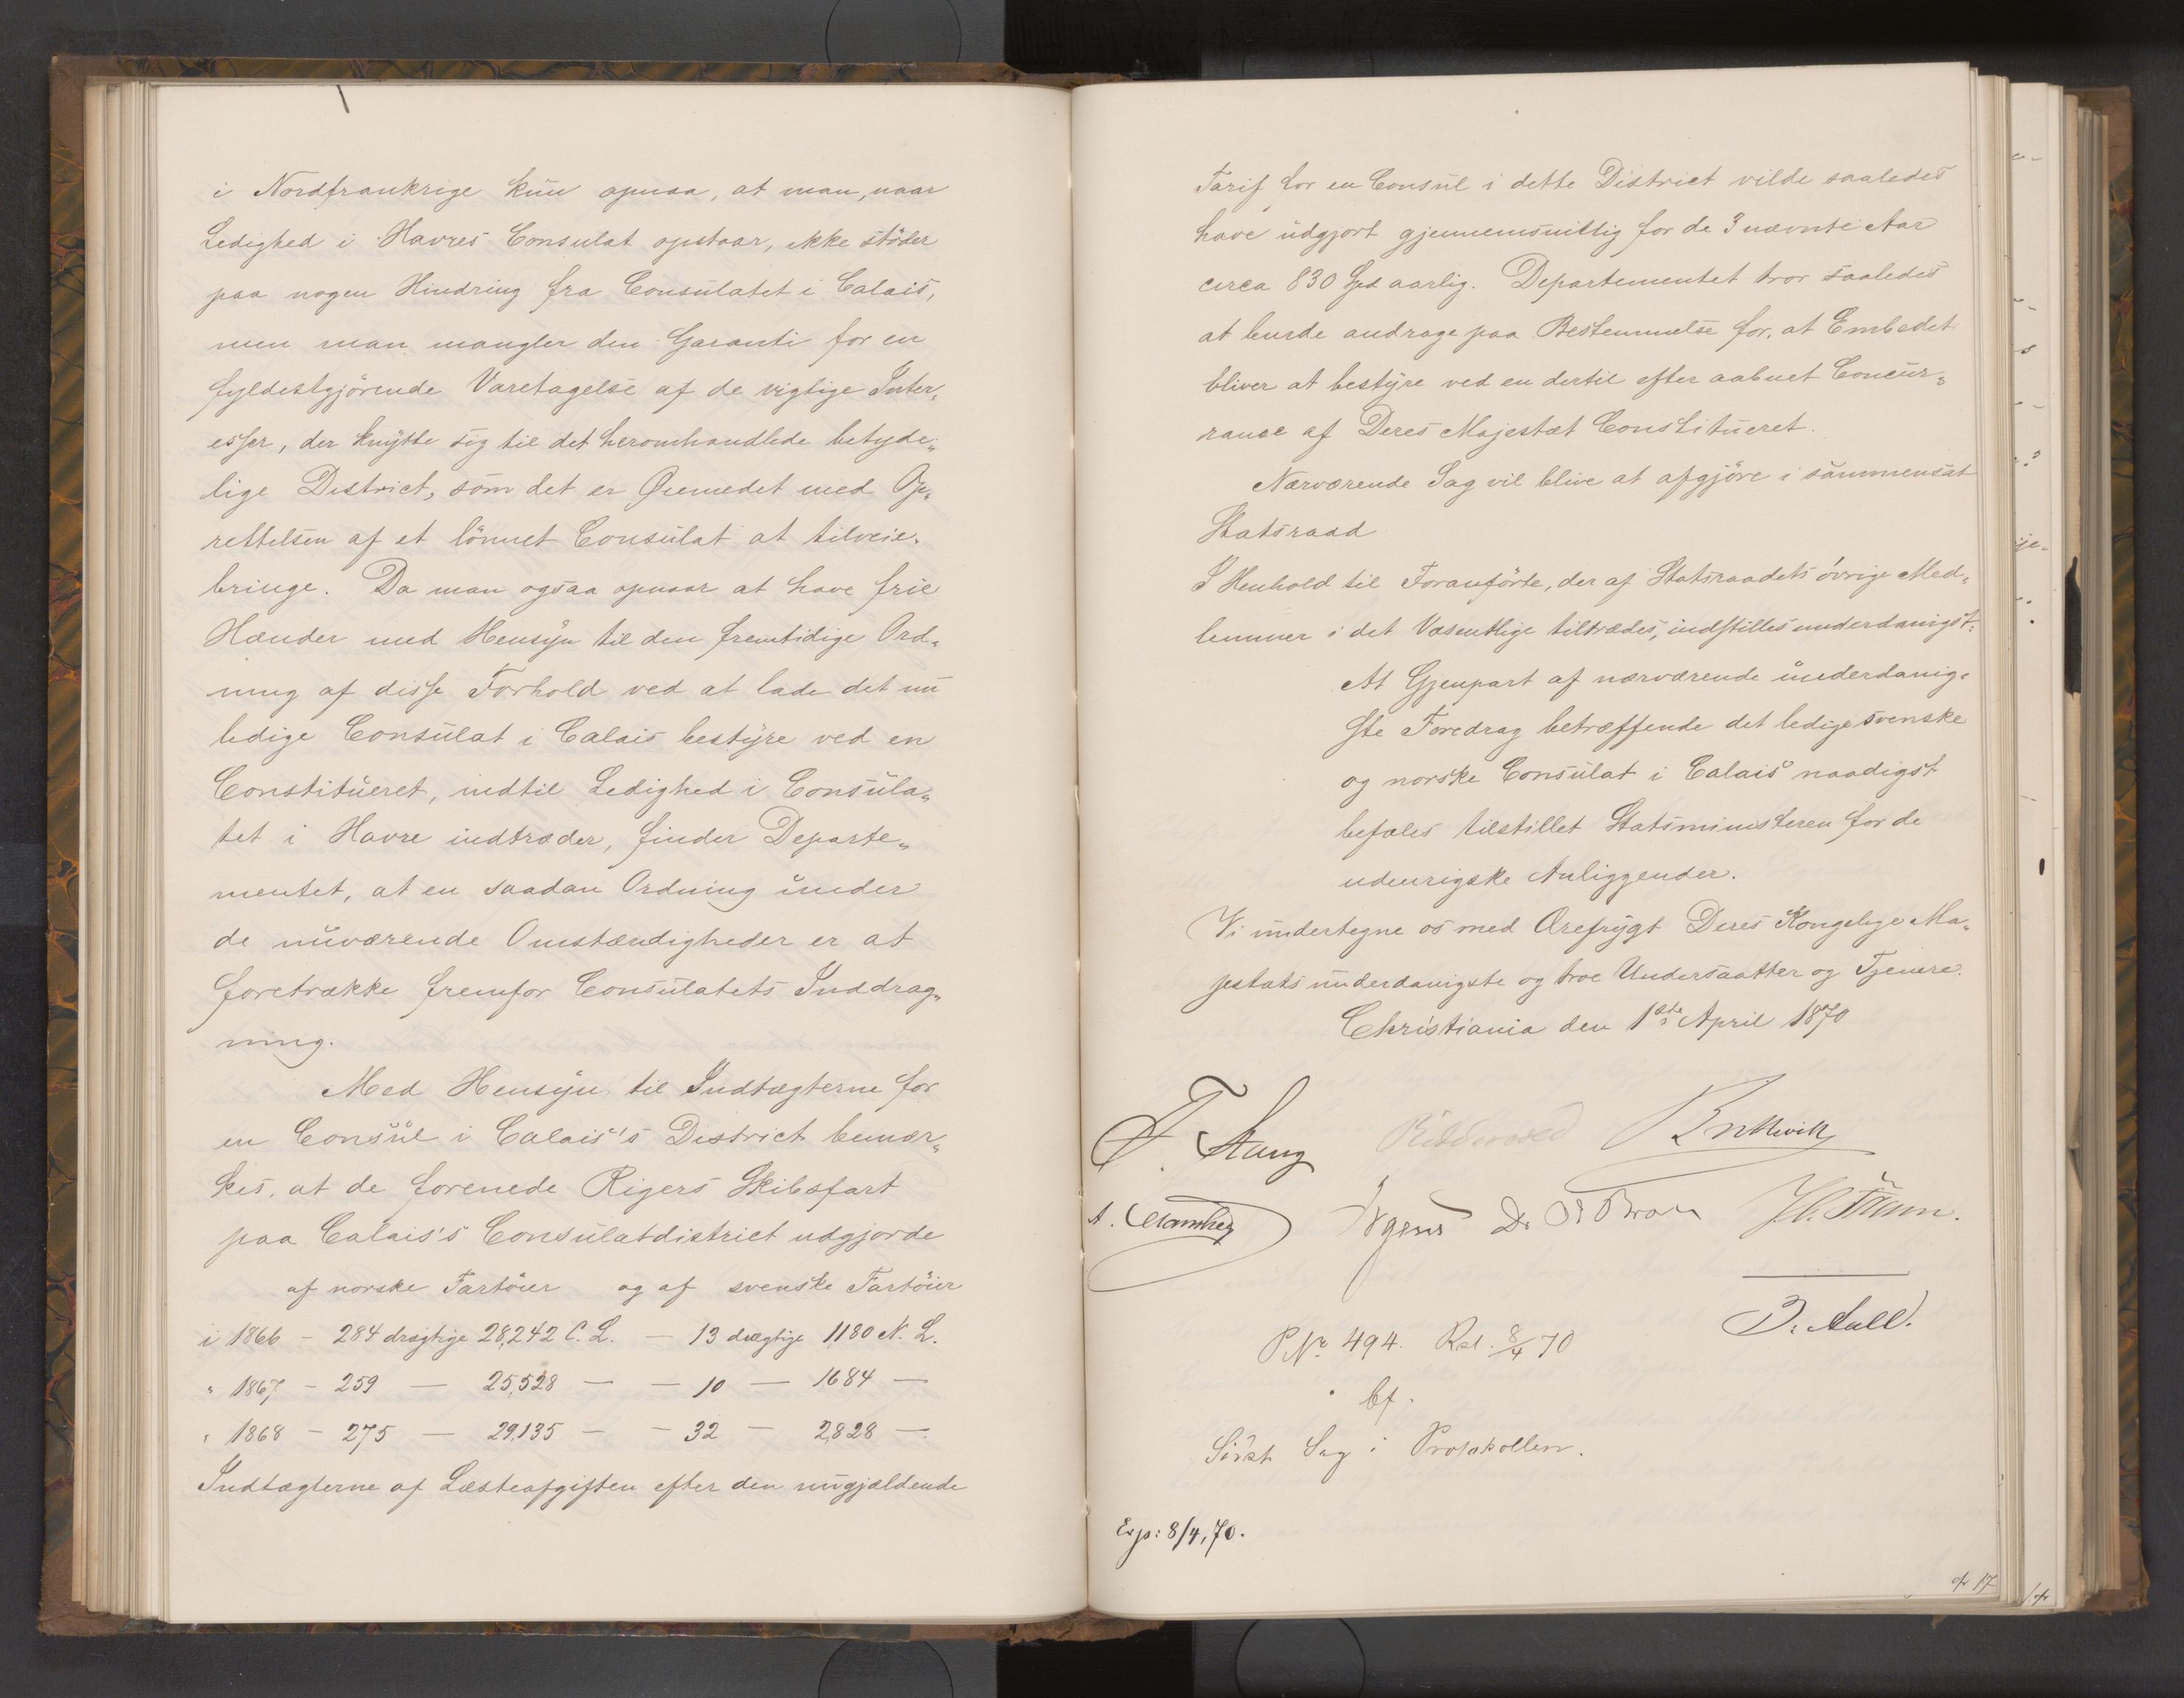 i Nordfrankrige kun opnaa, at man, naar
Ledighed i Havres Consulat opstaar, ikke støder
paa nogen Hindring fra Consulatet i Calais,
men man mangler den Garanti for en
fyldestgjørende Varetagelse af de vigtige Inter„
esser, der knytte sig til det heromhandlede betyde„
lige District, som det er Øiemedet med Op„
rettelsen af et lønnet Consulat at tilveie„
bringe. Da man ogsaa opnaar at have frie
Hænder med Hensyn til den fremtidige Ord„
ning af disse Forhold ved at lade det nu
ledige Consulat i Calais bestyre ved en
Constitueret, indtil Ledighed i Consula„
tet i Havre indtræder, finder Departe„
mentet, at en saadan Ordning under
de nuværende Omstændigheder er at
foretrække fremfor Consulatets Inddrag„
ning.
Med Hensyn til Indtægterne for
en Consul i Calais's District bemær„
kes, at de forenede Rigers Skibsfart
paa Calais's Consulatdistrict udgjorde
af norske Fartøier og af svenske Fartøier
i 1866 - 284 drægtige 28,242 C. L. — 13 drægtige 1180 N. L.
" 1867 - 259 — 25,528 — — 10 — 1684 —
" 1868 - 275 — 29,135 — — 32 — 2,828 —.
Indtægterne af Læsteafgiften efter den nugjældende
Tarif for en Consul i dette District vilde saaledes
have udgjort gjennemsnitlig for de 3 nævnte Aar
circa 830 Spd aarlig. Departementet tror saaledes
at burde andrage paa Bestemmelse for, at Embedet
bliver at bestyre ved en dertil efter aabnet Concur„
rance af Deres Majestæt Constitueret.
Nærværende Sag vil blive at afgjøre i sammensat
Statsraad
I Henhold til Foranførte, der af Statsraadets øvrige Med„
lemmer i det Væsentlige tiltrædes, indstilles underdanigst:
At Gjenpart af nærværende underdanig„
ste Foredrag betræffende det ledige svenske
og norske Consulat i Calais naadigst
befales tilstillet Statsministeren for de
udenrigske Anliggender.
Vi undertegne os med Ærefrygt Deres Kongelige Ma„
jestæts underdanigste og troe Undersaatter og Tjenere.
Christiania den 1ste April 1870
F. Stang Riddervold Bretteville
Irgens
B. Aall.
P Nr. 494. Rsl. 8/4 70
bf.
Sidste Sag i Protokollen.
Exp: 8/4, 70.
17